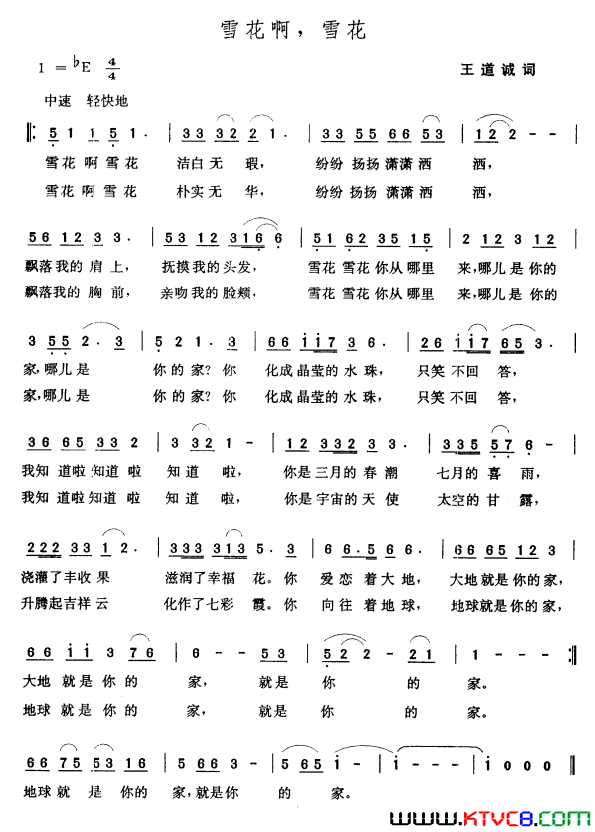 雪花啊，雪花
1 = ♭E 4/4
王道诚词
中速 轻快地
5 1 1 5 1 · | 3 3 3 2 2 1 · | 3 3 5 5 6 6 5 3 | 1 2 2 - - |
雪花 啊 雪花 洁白 无 瑕， 纷纷 扬扬 潇潇 洒 洒，
雪花 啊 雪花 朴实 无 华， 纷纷 扬扬 潇潇 洒 洒，
5 6 1 2 3 3 · | 3 5 3 2 1 2 3 1 6 6 · | 5 1 6 2 3 5 1 5 | 2 1 2 3 1 2 |
飘落 我的 肩 上， 抚摸 我的 头发， 雪花 雪花 你从 哪里 来，哪儿 是 你的
飘落 我的 胸 前， 亲吻 我的 脸颊， 雪花 雪花 你从 哪里 来，哪儿 是 你的
3 5 5 2 · 3 | 5 2 1 · 3 | 6 6 i i 7 3 6 · | 2 6 i i 7 6 5 3 · |
家，哪儿 是 你 的 家？ 你 化成 晶莹的 水 珠， 只笑 不回 答，
家，哪儿 是 你 的 家？ 你 化成 晶莹的 水 珠， 只笑 不回 答，
3 6 6 5 3 3 2 | 3 3 2 1 - | 1 2 3 3 3 2 3 3 · | 3 3 5 5 7 6 - |
我知 道啦 知道 啦 知 道 啦， 你是 三月的 春 潮 七月的 喜 雨，
我知 道啦 知道 啦 知 道 啦， 你是 宇宙的 天 使 太空的 甘 露，
2 2 2 3 3 1 2 · | 3 3 3 3 3 1 3 5 · 3 | 6 6 · 5 6 6 | 6 5 6 6 5 3 3 |
浇灌了 丰收 果 滋润了 幸福 花。你 爱恋 着 大 地， 大地 就是 你的 家，
升腾起 吉祥 云 化作了 七彩 霞。你 向往 着 地球， 地球 就是 你的 家，
6 6 i i 3 7 6 | 6 - - 5 3 | 5 2 2 - 2 1 | 1 - - - :‖
大地 就 是 你 的 家， 就是 你 的 家。
地球 就 是 你 的 家， 就是 你 的 家。
6 6 7 5 5 3 1 6 | 5 6 6 3 · | 5 6 5 i · i - | i - - - | i 0 0 0 ‖
地球 就 是 你的 家，就是 你 的 家。
www.KTVC8.com